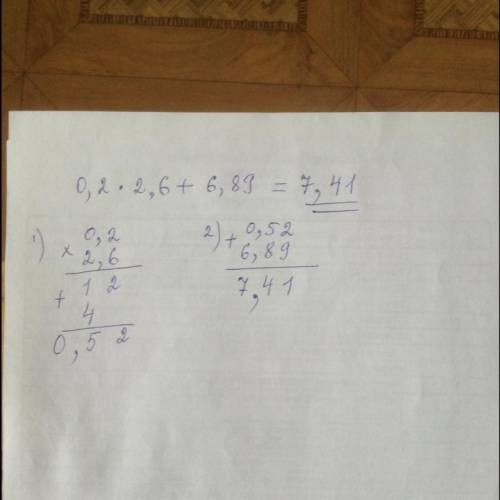 0,2 · 2,6 + 6,89 = 7,41
1) × 0,2
2,6
+ 1 2
4
0,5 2
2) + 0,52
6,89
7,41